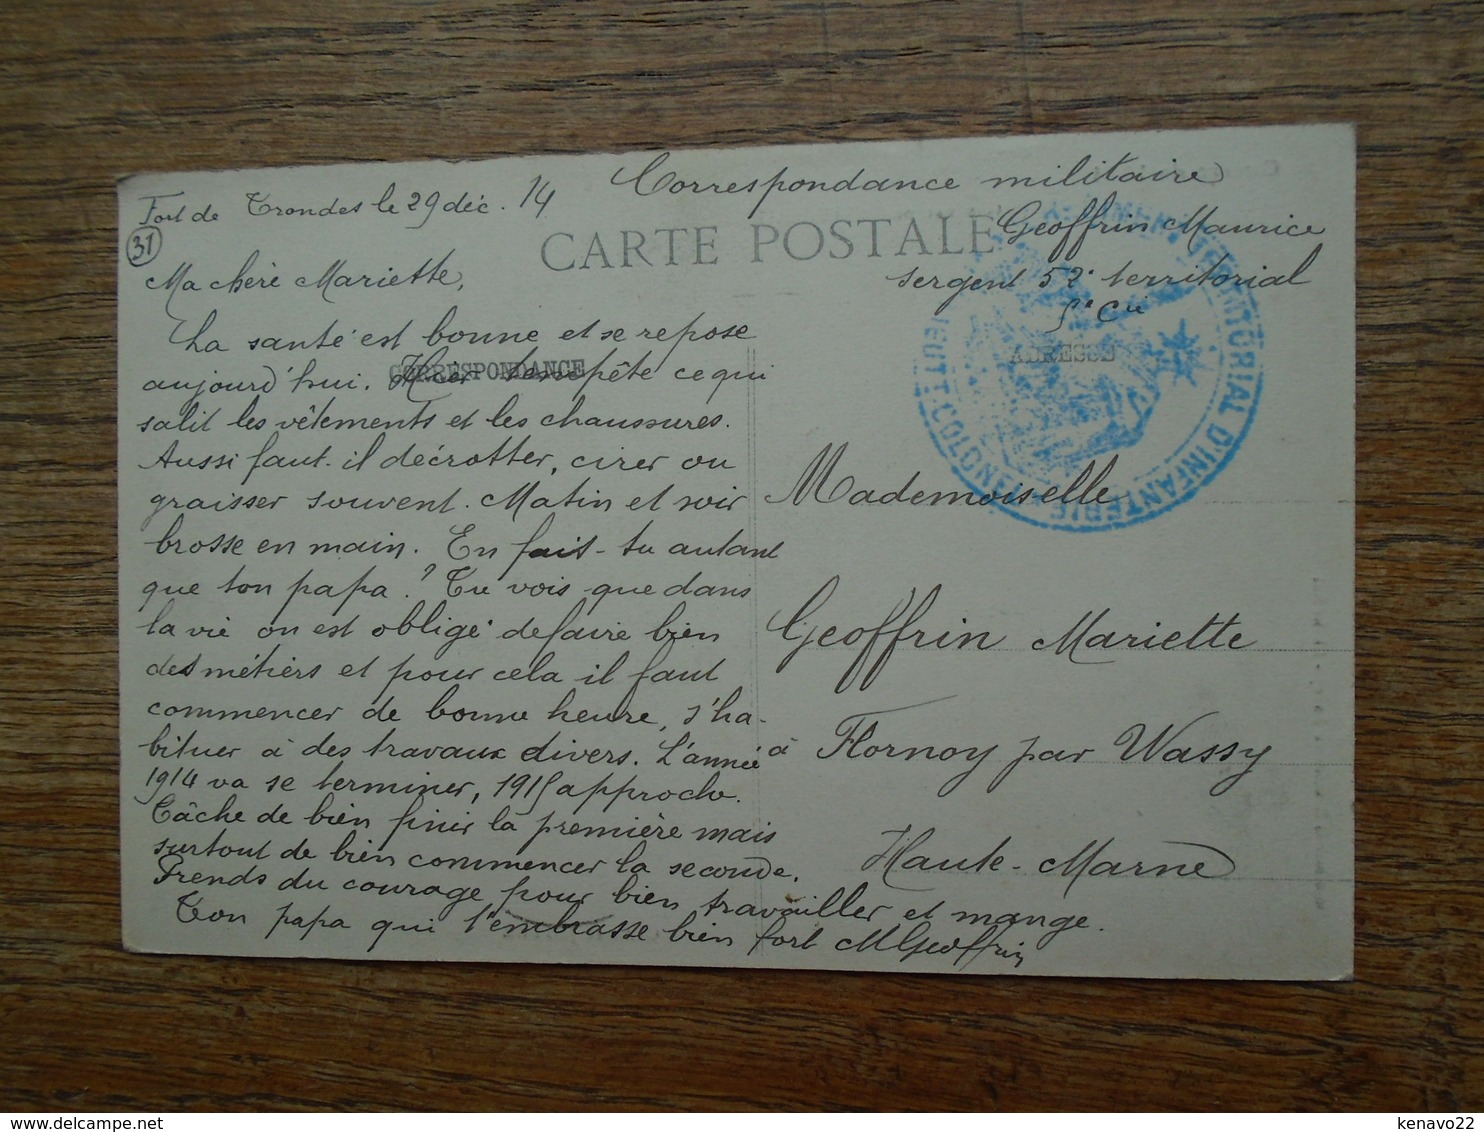 Correspondance militaire
Fort de Trondes le 29 déc. 14
31
CARTE POSTALE
Geoffrin Maurice
sergent 52e territorial
5e Cie
ADRESSE
Ma chère Mariette,
La santé est bonne et se repose
CORRESPONDANCE
aujourd'hui. Hier tempête ce qui
salit les vêtements et les chaussures.
Aussi faut-il décrotter, cirer ou
graisser souvent. Matin et soir
brosse en main. En fais-tu autant
que ton papa? Tu vois que dans
la vie on est obligé de faire bien
des métiers et pour cela il faut
commencer de bonne heure, s'ha-
bituer à des travaux divers. L'année
1914 va se terminer, 1915 approche.
Tâche de bien finir la première mais
surtout de bien commencer la seconde.
Prends du courage pour bien travailler et mange.
Ton papa qui t'embrasse bien fort MGeoffrin
Mademoiselle
Geoffrin Mariette
à Flornoy par Wassy
Haute-Marne
TERRITORIAL D'INFANTERIE
LIEUT.COLONEL
kenavo22